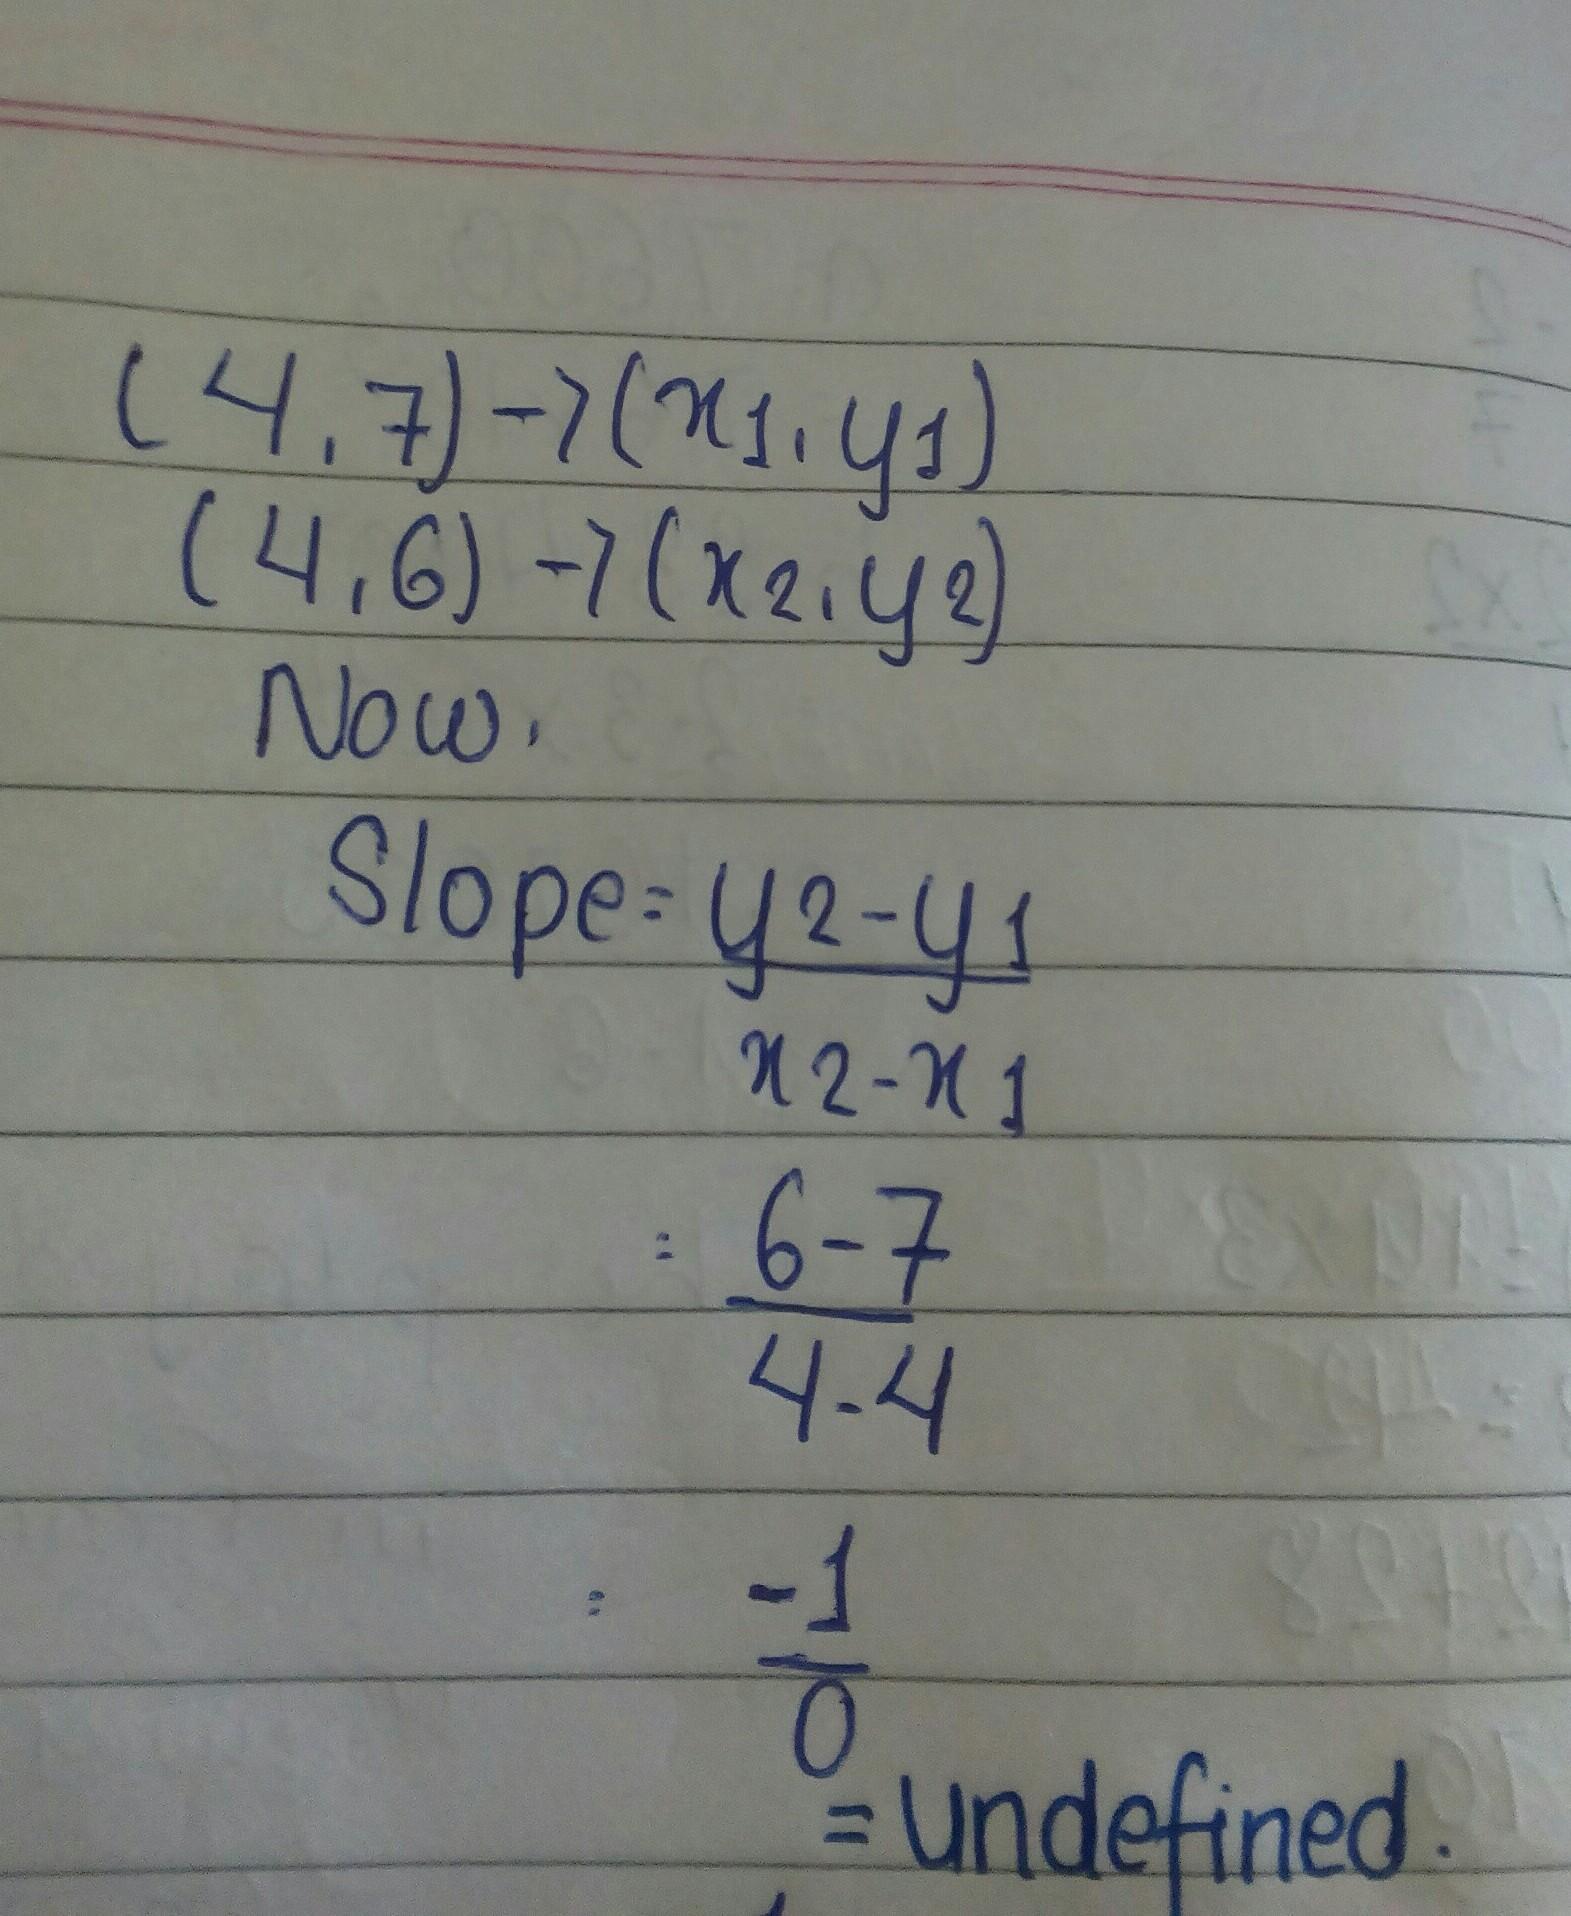 (4,7)->(x1,y1)
(4,6)->(x2,y2)
Now,
Slope=y2-y1
x2-x1
= 6-7
4-4
= -1
0
=undefined.